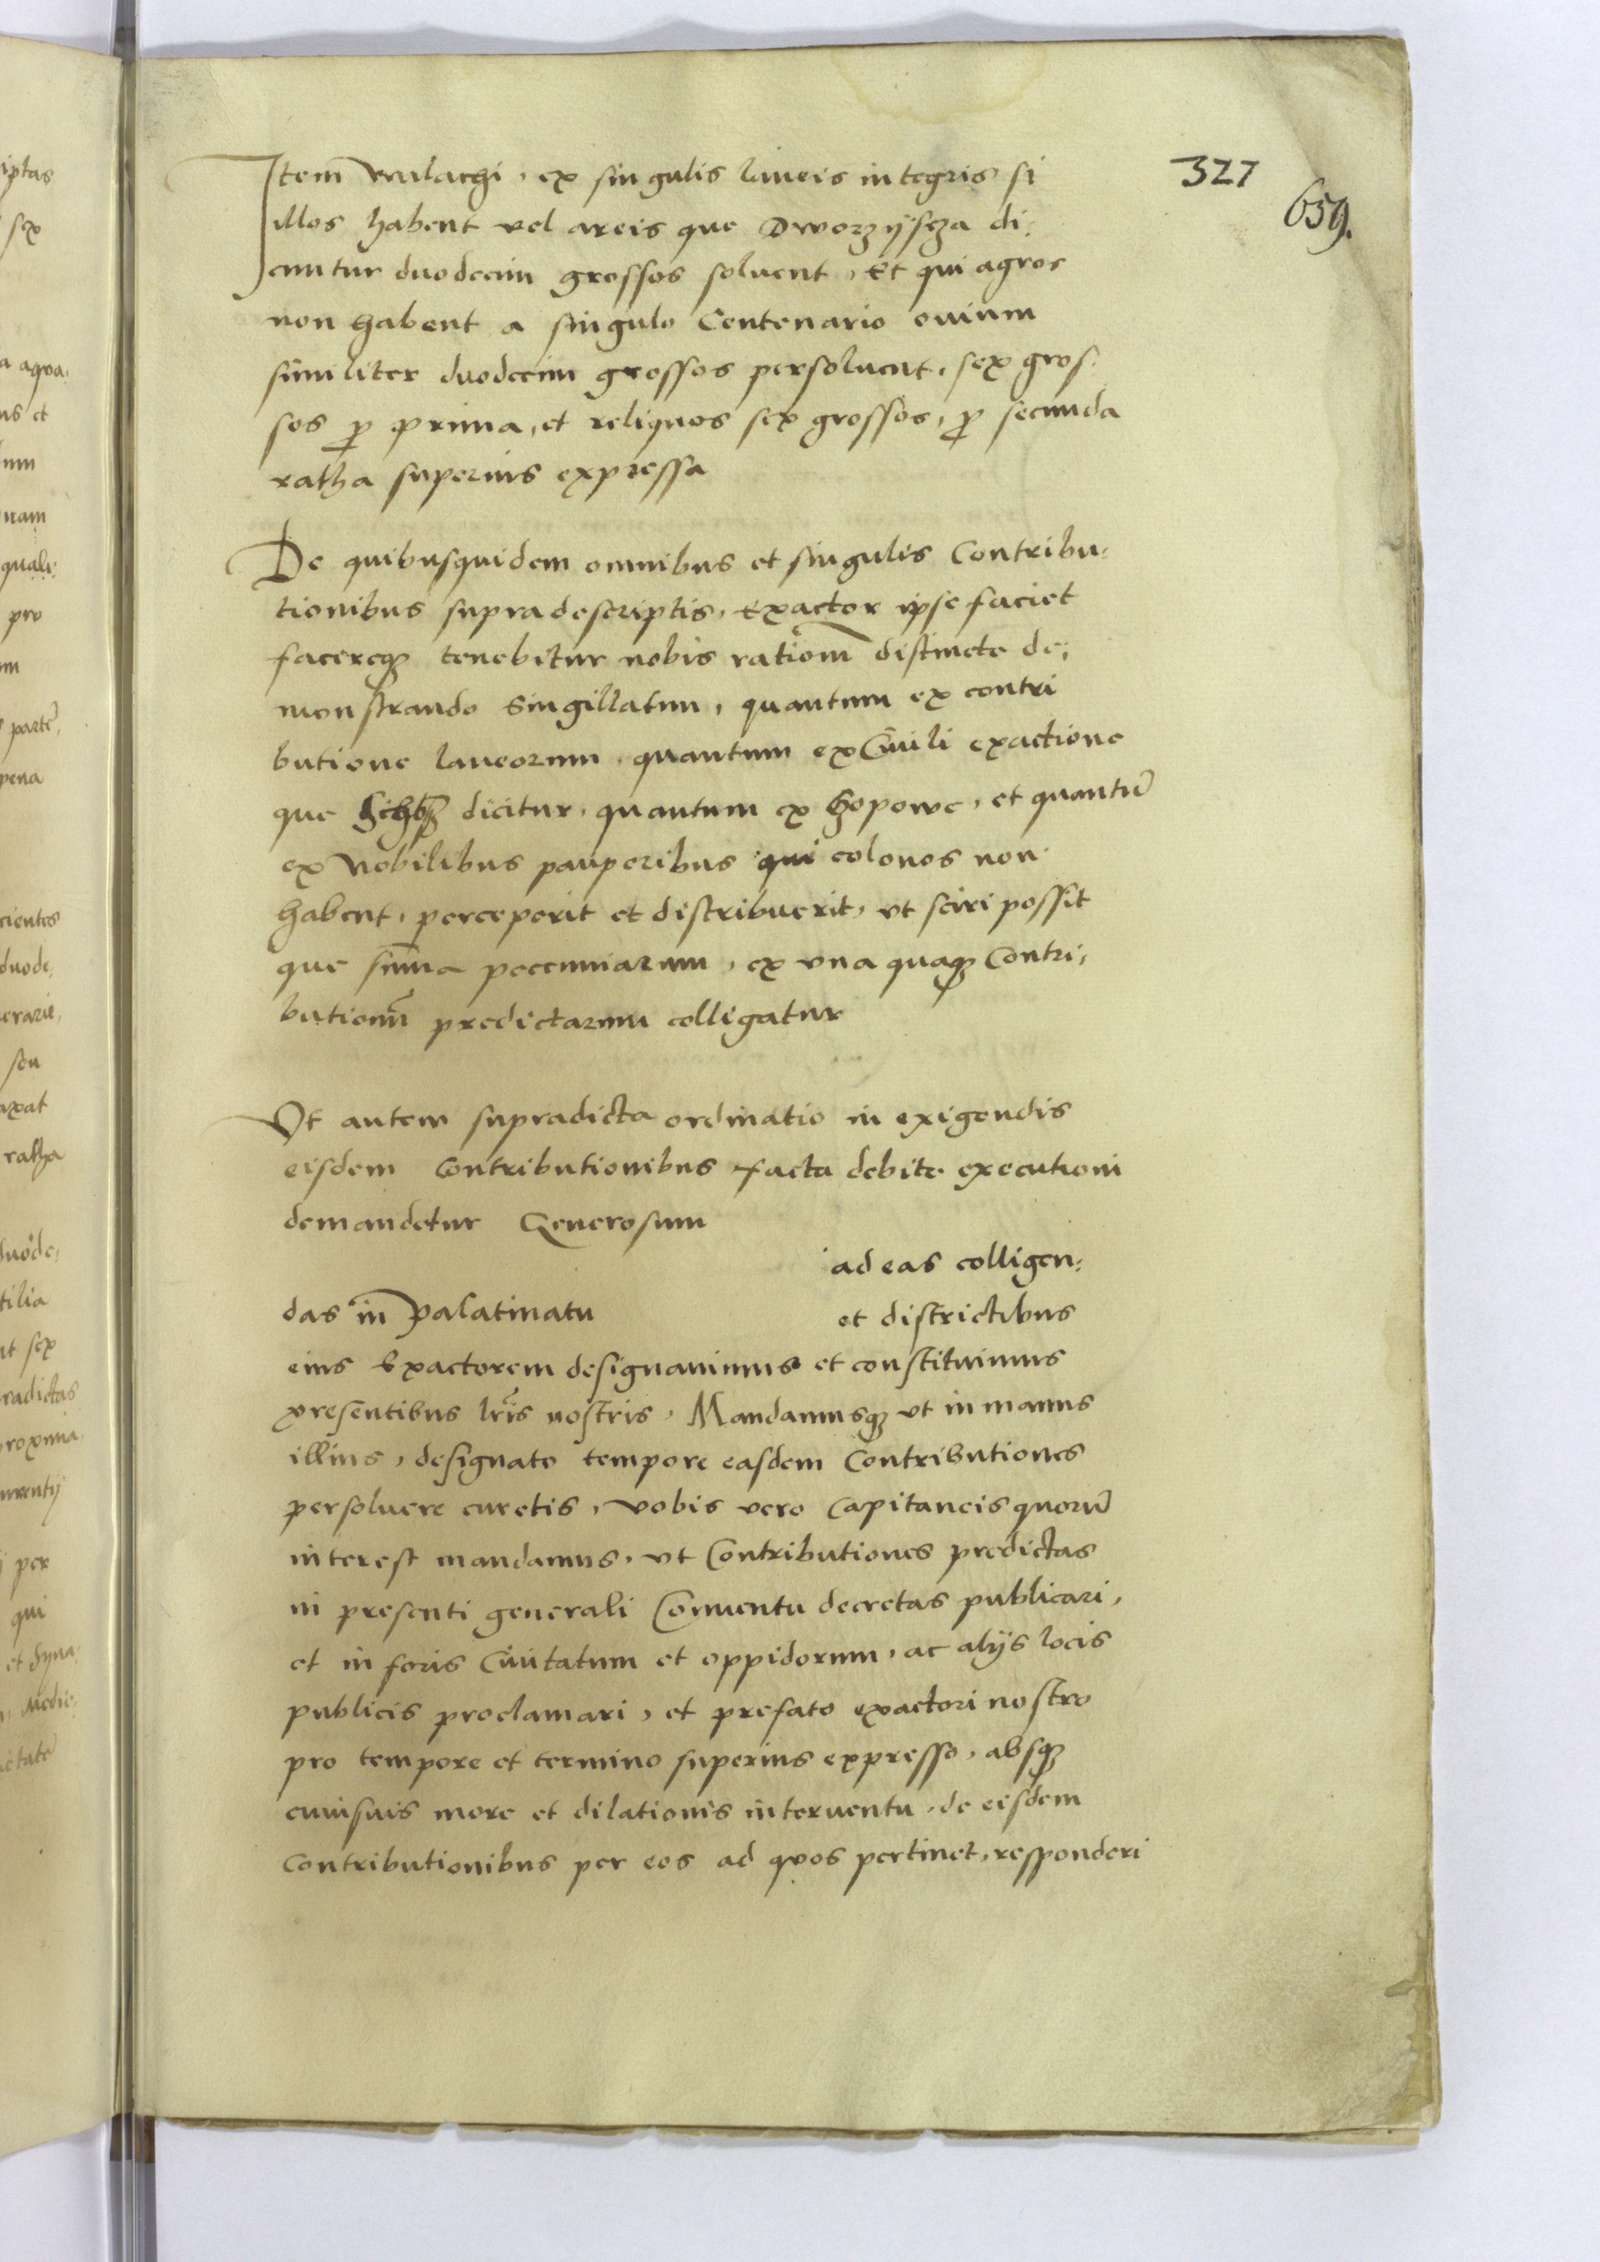 327
659.
Item walachi, ex singulis laneis integris si
illos habent vel areis que Dworzÿscza di:
cuntur duodecim grossos solvent, Et qui agros
non habent a singulo Centenario ovium
similiter duodecim grossos persolvent, sex gros:
sos p prima, et reliquos sex grossos, p secunda
ratha superius expressa
De quibusquidem omnibus et singulis Contribu:
tionibus supradescriptis, Exactor ipse faciet
facereqz tenebitur nobis rationem distincte de:
monstrando Singillatim, quantum ex contri
butione laneorum, quantum ex Civili exactione
que dicitur, quantum ex Czopowe, et quantu
ex Nobilibus pauperibus qui colonos non
habent, perceperit et distribuerit, vt sciri possit
que suma pecuniarum, ex vna quaqz Contri:
butionum predictarum colligatur
Vt autem supradicta ordinatio in exigendis
eisdem Contributionibus facta debite executioni
demandetur Generosum
ad eas colligen:
das in palatinatu et districtibus
eius Exactorem designavimus et constituimus
presentibus lris nostris, Mandamusqz vt in manus
illius, designato tempore easdem Contributiones
persolvere curetis, Vobis vero Capitaneis quoru
interest mandamus, vt Contributiones predictas
in presenti generali Conventu decretas publicari,
et in foris Civitatum et oppidorum, ac alÿs locis
publicis proclamari, et prefato exactori nostro
pro tempore et termino superius expresso, absqz
cuiusuis more et dilationis interventu, de eisdem
Contributionibus per eos ad quos pertinet, responderi